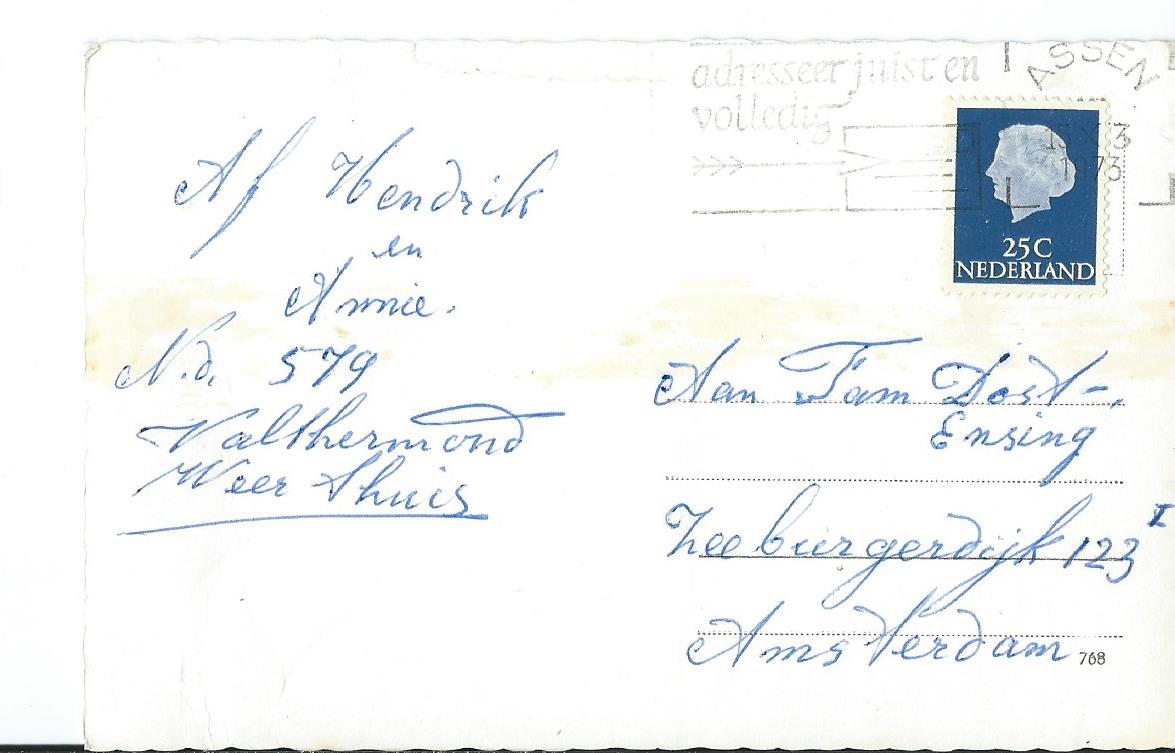 adresseer juist en
volledig
ASSEN
1973
25C
NEDERLAND
Af Hendrik
en
Annie.
N.d. 579
Valthermond
Weer thuis
Aan Fam Dost-
Ensing
Zeeburgerdijk 123 I
Amsterdam
768